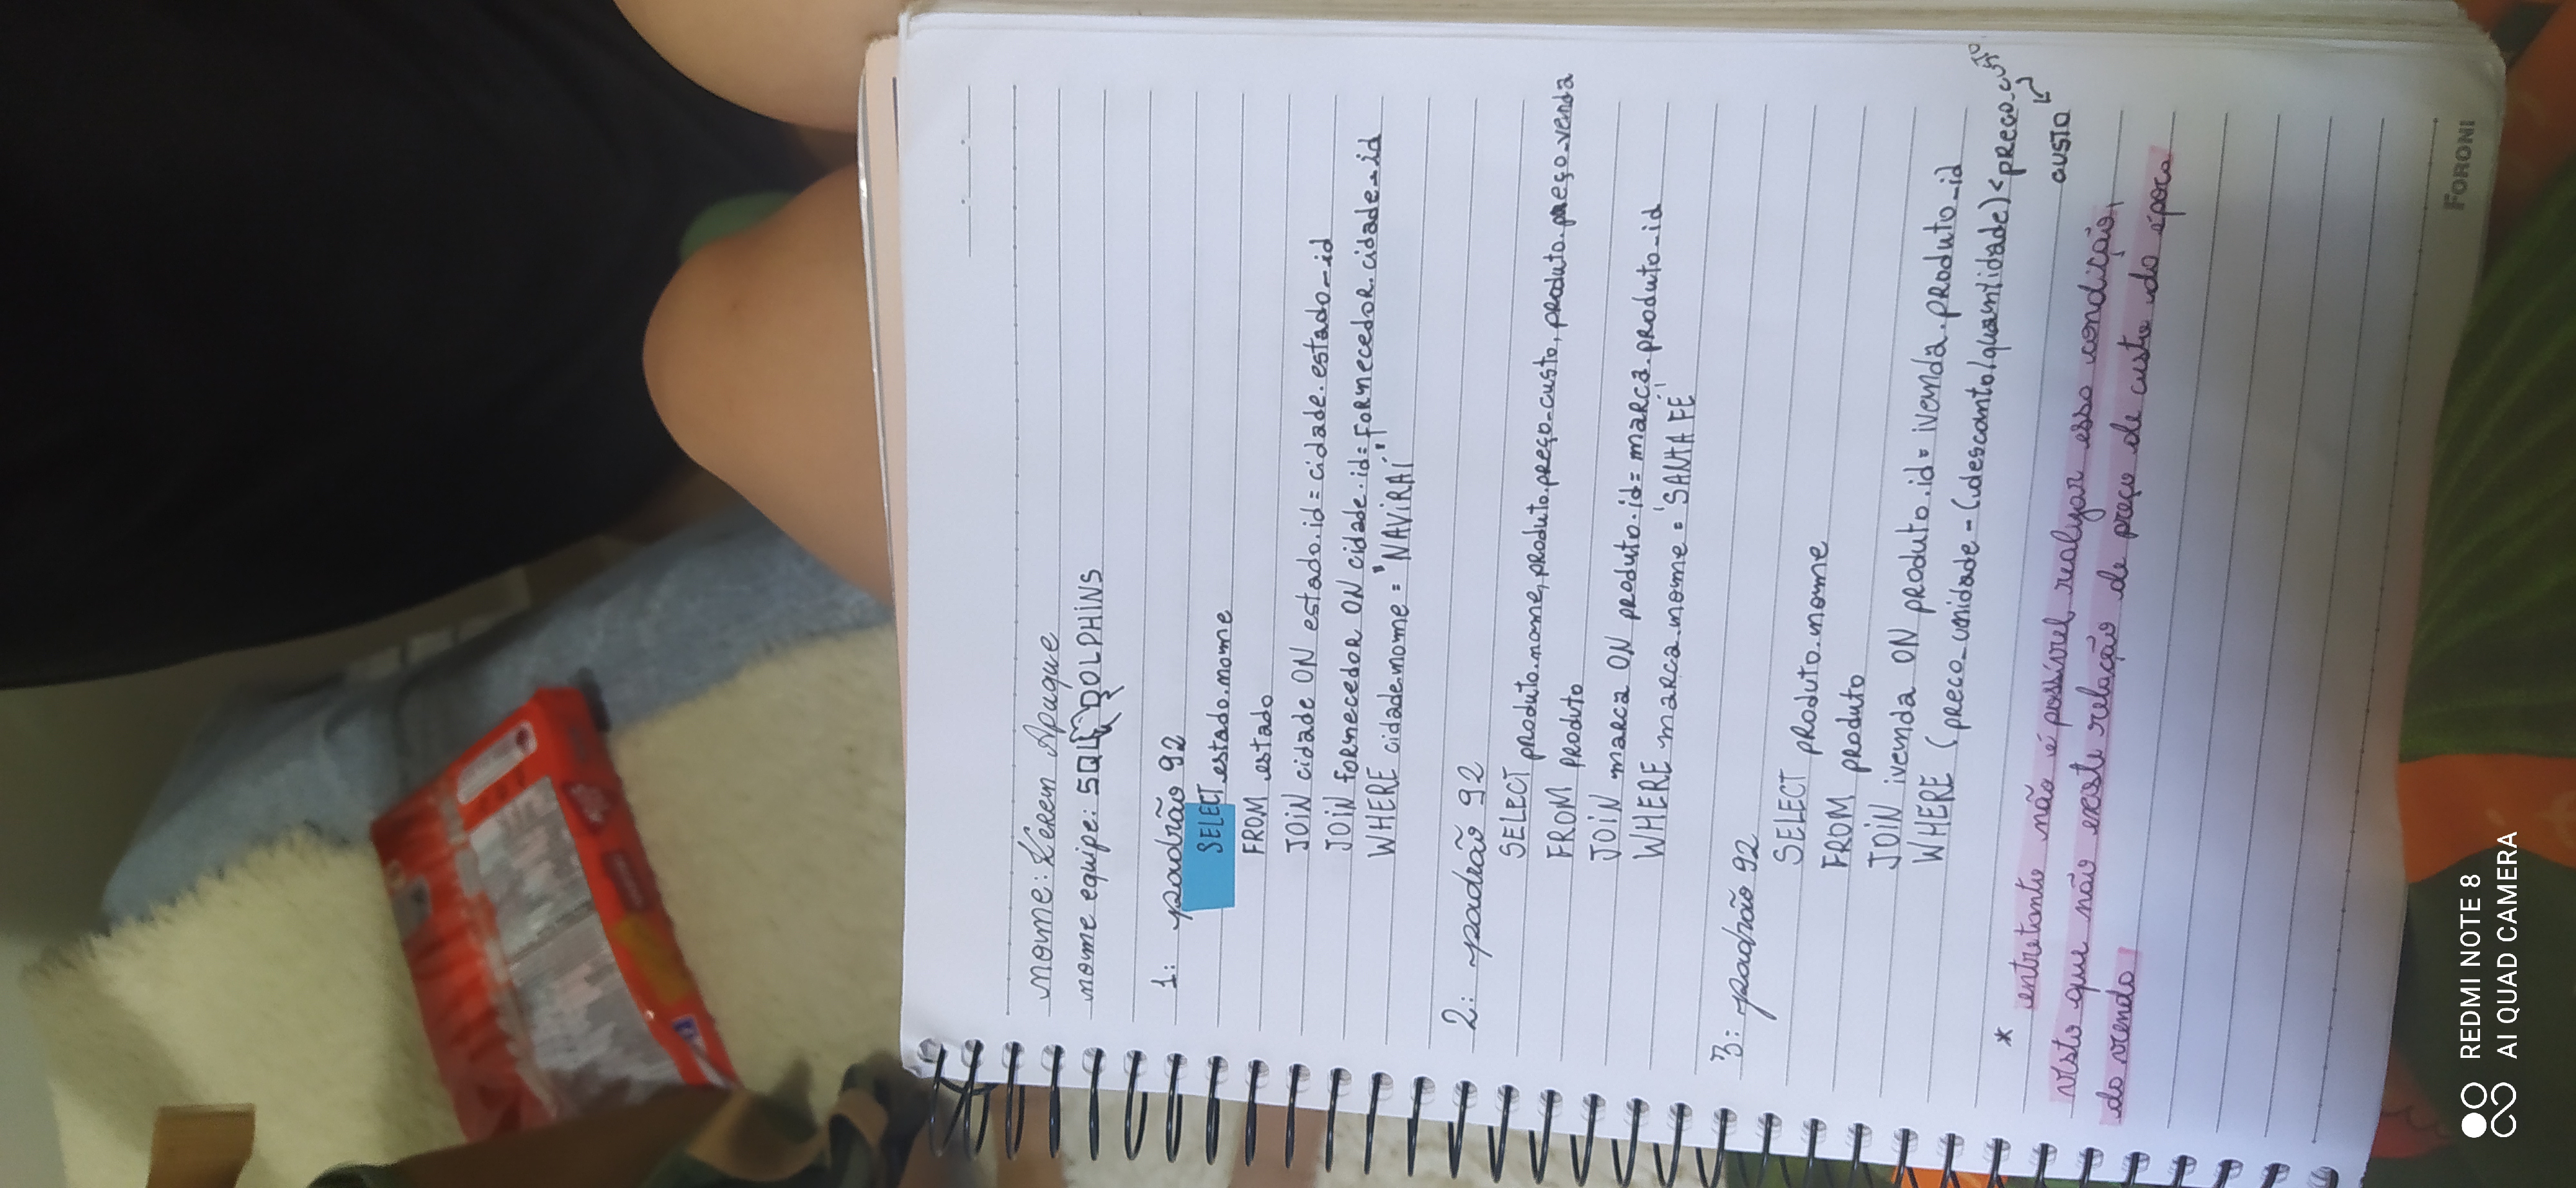 nome: Kerem Apuque
nome equipe: SQL DOLPHINS
1: padrão 92
SELECT estado.nome
FROM estado
JOIN cidade ON estado.id = cidade.estado_id
JOIN fornecedor ON cidade.id = fornecedor.cidade_id
WHERE cidade.nome = "NAVIRAÍ"
2: padrão 92
SELECT produto.nome, produto.preço_custo, produto.preço_venda
FROM produto
JOIN marca ON produto.id = marca.produto_id
WHERE marca.nome = 'SANTA FÉ'
3: padrão 92
SELECT produto.nome
FROM produto
JOIN ivenda ON produto.id = ivenda.produto_id
WHERE (preco_unidade - (desconto/quantidade) < preco_custo
custo
* entretanto não é possível realizar essa condição,
visto que não existe relação de preço de custo da época
da venda
FORONI
REDMI NOTE 8
AI QUAD CAMERA